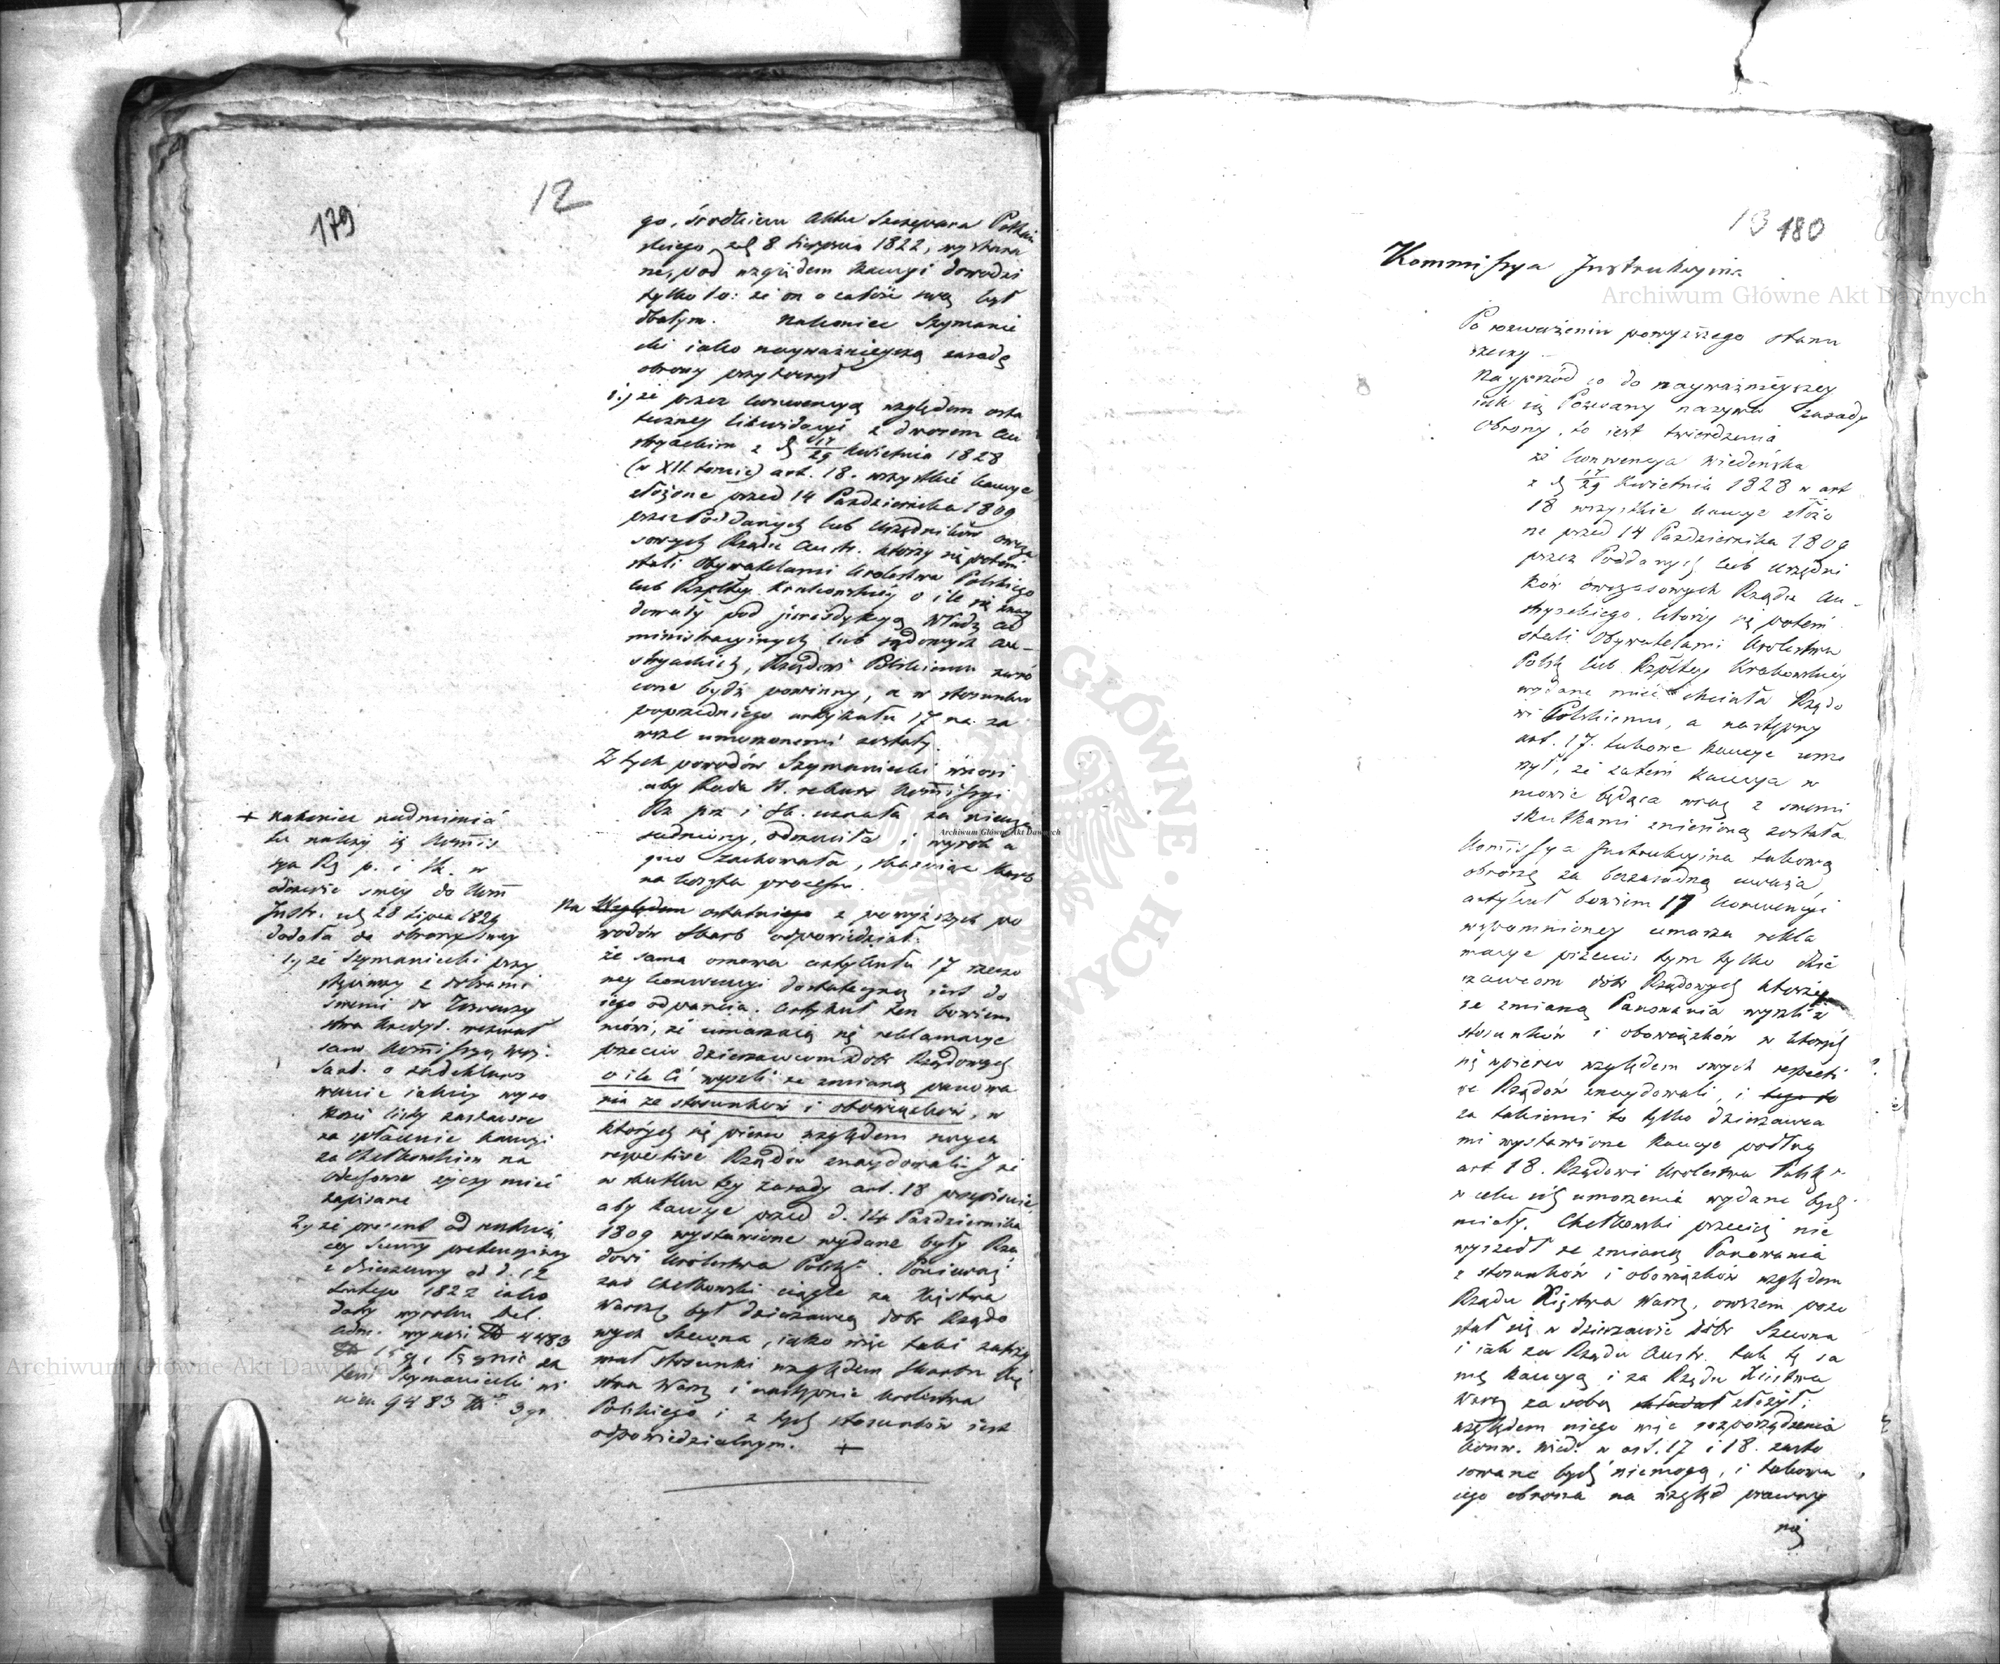 179
12
go, środkiem Aktu Szczepana Potkań
skiego z d. 8 Sierpnia 1822, wystawio
ne, pod względem kaucyi dowodzi
tylko to: że on o całość swą był
dbałym. Nakoniec Szymanie
cki iako nayważnieyszą zasadę
obrony przytoczył
1.) że przez konwencyą względem osta
teczney likwidacyi z dworem Au
stryackim z d. 17/29 Kwietnia 1828
(w XII. tomie) art. 18. wszystkie kaucye
złożone przed 14 Października 1809
przez Poddanych lub Urzędników ówcza
sowych Rządu Austr. którzy się potém
stali Obywatelami Królestwa Polskiego
lub Rzpltey Krakowskiéy o ile się znay
dowały pod jurisdykcyą Władz ad
ministracyinych lub sądowych Au-
stryackich, Rządowi Polskiemu zwró
cone bydź powinny, a w stosunku
poprzedniego artykułu 17 na za
wsze umorzonemi zostały.
Z tych powodów Szymaniecki wnosi
aby Rada St. rekurs Kommissyi
Rz. prz. i Sk. uznała za nieuza
sadniony, odrzuciła i wyrok a
quo zachowała, skazuiąc Skarb
na koszta processu.
Na Względem ostatniego z powyższych po
wodów Skarb odpowiedział:
że sama osnowa artykułu 17 rzeczo
ney konwencyi dostateczną iest do
iego odparcia. Artykuł ten bowiem
mówi, że umarzaią się reklamacye
przeciw dzierżawcom Dóbr Rządowych
o ile Ci wyszli ze zmianą panowa
nia ze stosunków i obowiązków, w
których się pierw względem swych
respective Rządów znaydowali. I że
w skutku tey zasady art. 18 przepisuie
aby kaucye przed d. 14 Października
1809 wystawione wydane były Rzą
dowi Królestwa Polsk. Ponieważ
zaś Chełkowski ciągle za Xięstwa
Warsz. był dzierżawcą dóbr Rządo
wych Szewna, iako więc taki zatrzy
mał stosunki względem Skarbu Xię
stwa Warsz. i następnie Królestwa
Polskiego i z tych stosunków iest
odpowiedzialnym. +
+ Nakoniec nadmienia
tu należy iż Kommis
sya Rz. p. i Sk. w
odezwie swéy do Komm
Instr. z d. 28 Lipca 1829
dodała do obrony swéy
1.) że Szymaniecki przy
stępuiąc z dobrami
swemi do Towarzy
stwa Kredyt. wezwał
sam Kommissyą Woj.
Sand. o zadeklaro
wanie iakiéy wyso
kości listy zastawne
na spłacenie kaucyi
za Chełkowskim na
Odechowie życzy mieć
zapisane
2.) że procent od należą
cey Summy pretensyiney
z dzierżawy od d. 12
Lutego 1822 iako
daty wyroku Del.
Adm. wynosi Złp 4483
ten Szymaniecki wi
nien 9483 Złp 3 gr.
13 180
Kommissya Instrukcyina
Po rozważeniu powyższego stanu
rzeczy
Nayprzód co do nayważnieyszey
iak ią Pozwany nazywa zasady
Obrony, to iest twierdzenia
że konwencya wiedeńska
z d. 17/29 Kwietnia 1828 w art
18 wszystkie kaucye złożo
ne przed 14 Października 1809
przez Poddanych lub Urzędni
ków ówczasowych Rządu Au-
stryackiego, którzy się potém
stali Obywatelami Królestwa
Polsk. lub Rzpltey Krakowskiéy
wydane mieć chciała Rządo
wi Polskiemu, a następny
art. 17. takowe kaucye umo
rzył, że zatém kaucya w
mowie będąca wraz z swemi
skutkami zniesioną została
Kommissya Instrukcyina takową
obronę za bezzasadną uważa,
artykuł bowiem 17 konwencyi
wspomnioney umarza rekla
macye przeciw tym tylko dzier
żawcom dóbr Rządowych którzy
ze zmianą Panowania wyszli z
stosunków i obowiązków w których
się wpierw względem swych respecti
ve Rządów znaydowali, i tego to
za takiemi to tylko dzierżawca
mi wystawione kaucye podług
art 18. Rządowi Królestwa Polsk.
w celu ich umorzenia wydane bydź
miały. Chełkowski przeciéż nie
wyszedł ze zmianą Panowania
z stosunków i obowiązków względem
Rządu Xięstwa Warsz., owszem pozo
stał się w dzierżawie dóbr Szewna
i iak za Rządu Austr. tak tę sa
mą kaucyą i za Rządu Xięstwa
Warsz. za sobą składał złożył;
względem niego więc rozporządzenia
konw. wied. w art. 17 i 18. zasto
sowane bydź niemogą, i takowa
iego obrona na wzgląd prawny
nie
Archiwum Główne Akt Dawnych
Archiwum Główne Akt Dawnych
Archiwum Główne Akt Dawnych
GŁÓWNE